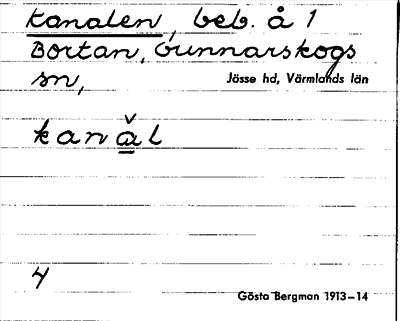 Kanalen, beb. å 1
Bortan, Gunnarskogs
sn,
Jösse hd, Värmlands län
kanǎ̠l
4
Gösta Bergman 1913–14